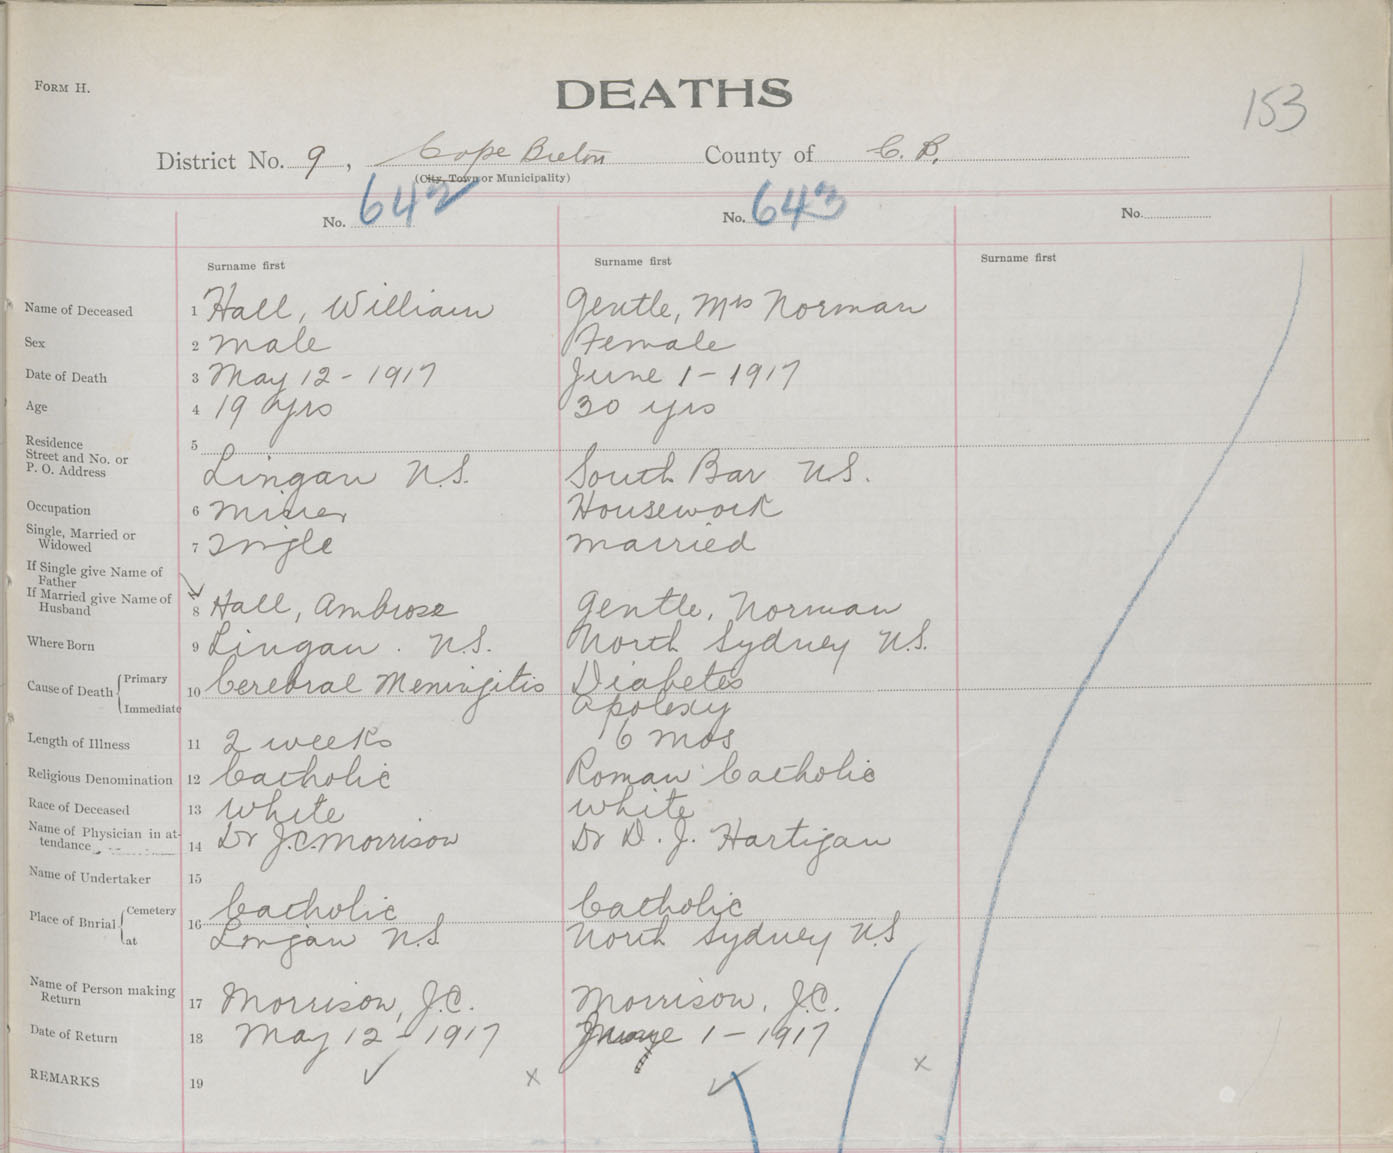 FORM H.
DEATHS
153
District No. 9, Cape Breton County of C. B.
(City, Town or Municipality)
No. 642 No. 643 No.
Surname first Surname first Surname first
Name of Deceased 1 Hall, William Gentle, Mrs Norman
Sex 2 male Female
Date of Death 3 May 12 - 1917 June 1 - 1917
Age 4 19 yrs 30 yrs
Residence 5
Street and No. or
P. O. Address Lingan N.S. South Bar N.S.
Occupation 6 miner Housework
Single, Married or
Widowed 7 Single married
If Single give Name of
Father
If Married give Name of
Husband 8 Hall, Ambrose Gentle, Norman
Where Born 9 Lingan. N.S. North Sydney N.S.
Cause of Death Primary 10 Cerebral Meningitis Diabetes
Immediate Apolexy
Length of Illness 11 2 weeks 6 mos
Religious Denomination 12 Catholic Roman Catholic
Race of Deceased 13 white white
Name of Physician in at-
tendance 14 Dr J.C. Morrison Dr D. J. Hartigan
Name of Undertaker 15
Place of Burial Cemetery 16 Catholic Catholic
at Lingan N.S North Sydney N.S
Name of Person making
Return 17 Morrison, J.C. Morrison, J.C.
Date of Return 18 May 12 - 1917 June 1 - 1917
REMARKS 19